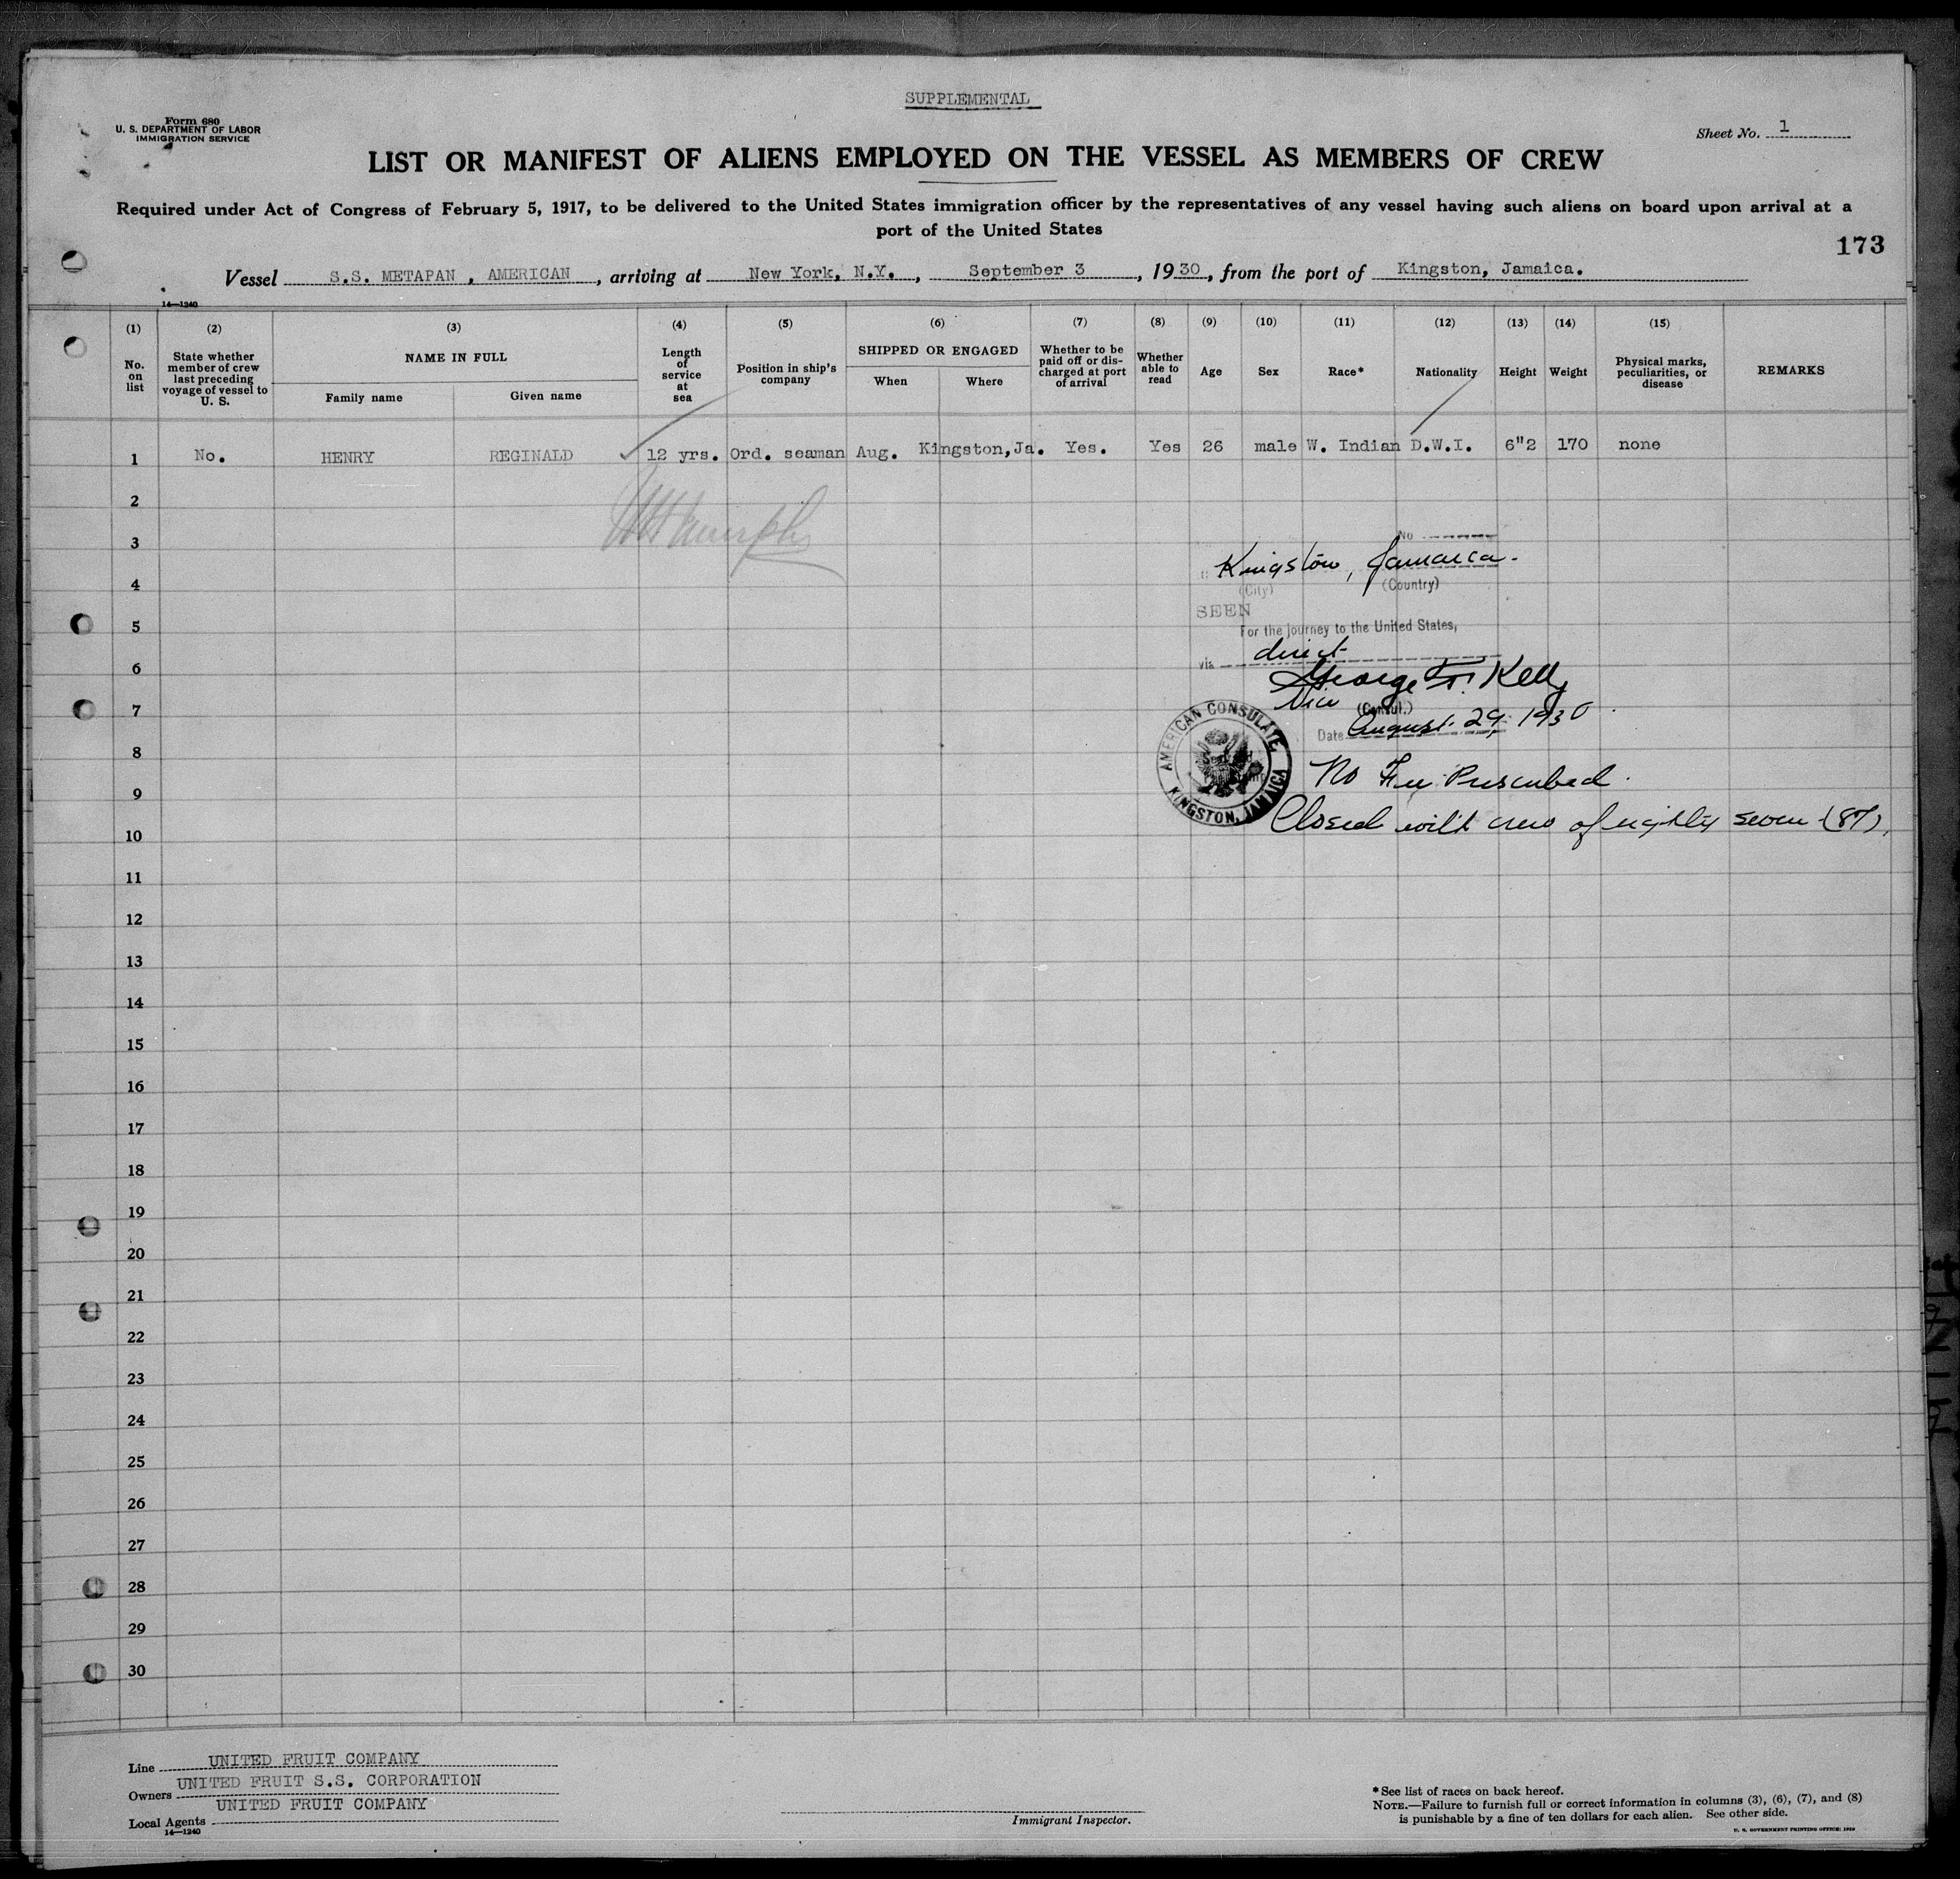 SUPPLEMENTAL
Form 680
U. S. DEPARTMENT OF LABOR
IMMIGRATION SERVICE
Sheet No. 1
LIST OR MANIFEST OF ALIENS EMPLOYED ON THE VESSEL AS MEMBERS OF CREW
Required under Act of Congress of February 5, 1917, to be delivered to the United States immigration officer by the representatives of any vessel having such aliens on board upon arrival at a
port of the United States
173
Vessel S.S. METAPAN , AMERICAN , arriving at New York, N.Y. , September 3 , 19 30 , from the port of Kingston, Jamaica.
14—1240
(1) (2) (3) (4) (5) (6) (7) (8) (9) (10) (11) (12) (13) (14) (15)
No. on list
State whether member of crew last preceding voyage of vessel to U. S.
NAME IN FULL
Family name
Given name
Length of service at sea
Position in ship's company
SHIPPED OR ENGAGED
When
Where
Whether to be paid off or discharged at port of arrival
Whether able to read
Age
Sex
Race*
Nationality
Height
Weight
Physical marks, peculiarities, or disease
REMARKS
1 No. HENRY REGINALD 12 yrs. Ord. seaman Aug. Kingston,Ja. Yes. Yes 26 male W. Indian D.W.I. 6"2 170 none
2
3
No
Kingston, Jamaica.
4
(City) (Country)
SEEN
5
For the journey to the United States,
via direct
6
George F. Kelly
Vice (Consul.)
7
Date August 29, 1930
AMERICAN CONSULATE,
KINGSTON, JAMAICA
8
No Fee Prescribed.
9
Closed with crew of eighty seven (87).
10
11
12
13
14
15
16
17
18
19
20
21
22
23
24
25
26
27
28
29
30
Line UNITED FRUIT COMPANY
Owners UNITED FRUIT S.S. CORPORATION
Local Agents UNITED FRUIT COMPANY
14—1240
Immigrant Inspector.
*See list of races on back hereof.
NOTE.—Failure to furnish full or correct information in columns (3), (6), (7), and (8)
is punishable by a fine of ten dollars for each alien. See other side.